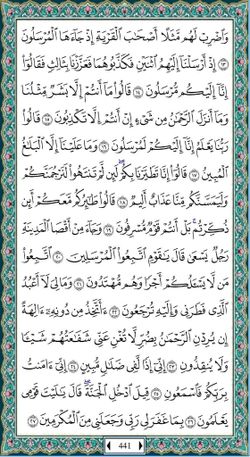 وَاضْرِبْ لَهُم مَّثَلًا أَصْحَابَ الْقَرْيَةِ إِذْ جَاءَهَا الْمُرْسَلُونَ
١٣ إِذْ أَرْسَلْنَا إِلَيْهِمُ اثْنَيْنِ فَكَذَّبُوهُمَا فَعَزَّزْنَا بِثَالِثٍ فَقَالُوا
إِنَّا إِلَيْكُم مُّرْسَلُونَ ١٤ قَالُوا مَا أَنتُمْ إِلَّا بَشَرٌ مِّثْلُنَا
وَمَا أَنزَلَ الرَّحْمَٰنُ مِن شَيْءٍ إِنْ أَنتُمْ إِلَّا تَكْذِبُونَ ١٥ قَالُوا
رَبُّنَا يَعْلَمُ إِنَّا إِلَيْكُمْ لَمُرْسَلُونَ ١٦ وَمَا عَلَيْنَا إِلَّا الْبَلَاغُ
الْمُبِينُ ١٧ قَالُوا إِنَّا تَطَيَّرْنَا بِكُمْ لَئِن لَّمْ تَنتَهُوا لَنَرْجُمَنَّكُمْ
وَلَيَمَسَّنَّكُم مِّنَّا عَذَابٌ أَلِيمٌ ١٨ قَالُوا طَائِرُكُم مَّعَكُمْ أَئِن
ذُكِّرْتُم بَلْ أَنتُمْ قَوْمٌ مُّسْرِفُونَ ١٩ وَجَاءَ مِنْ أَقْصَا الْمَدِينَةِ
رَجُلٌ يَسْعَىٰ قَالَ يَا قَوْمِ اتَّبِعُوا الْمُرْسَلِينَ ٢٠ اتَّبِعُوا
مَن لَّا يَسْأَلُكُمْ أَجْرًا وَهُم مُّهْتَدُونَ ٢١ وَمَا لِيَ لَا أَعْبُدُ
الَّذِي فَطَرَنِي وَإِلَيْهِ تُرْجَعُونَ ٢٢ أَأَتَّخِذُ مِن دُونِهِ آلِهَةً
إِن يُرِدْنِ الرَّحْمَٰنُ بِضُرٍّ لَّا تُغْنِ عَنِّي شَفَاعَتُهُمْ شَيْئًا
وَلَا يُنقِذُونِ ٢٣ إِنِّي إِذًا لَّفِي ضَلَالٍ مُّبِينٍ ٢٤ إِنِّي آمَنتُ
بِرَبِّكُمْ فَاسْمَعُونِ ٢٥ قِيلَ ادْخُلِ الْجَنَّةَ قَالَ يَا لَيْتَ قَوْمِي
يَعْلَمُونَ ٢٦ بِمَا غَفَرَ لِي رَبِّي وَجَعَلَنِي مِنَ الْمُكْرَمِينَ ٢٧
441